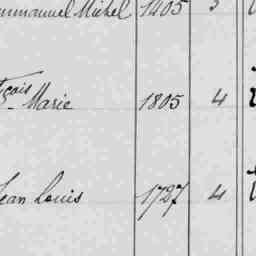 mmanuel Michel 1405 5
çois Marie 1805 4
Jean Louis 1727 4